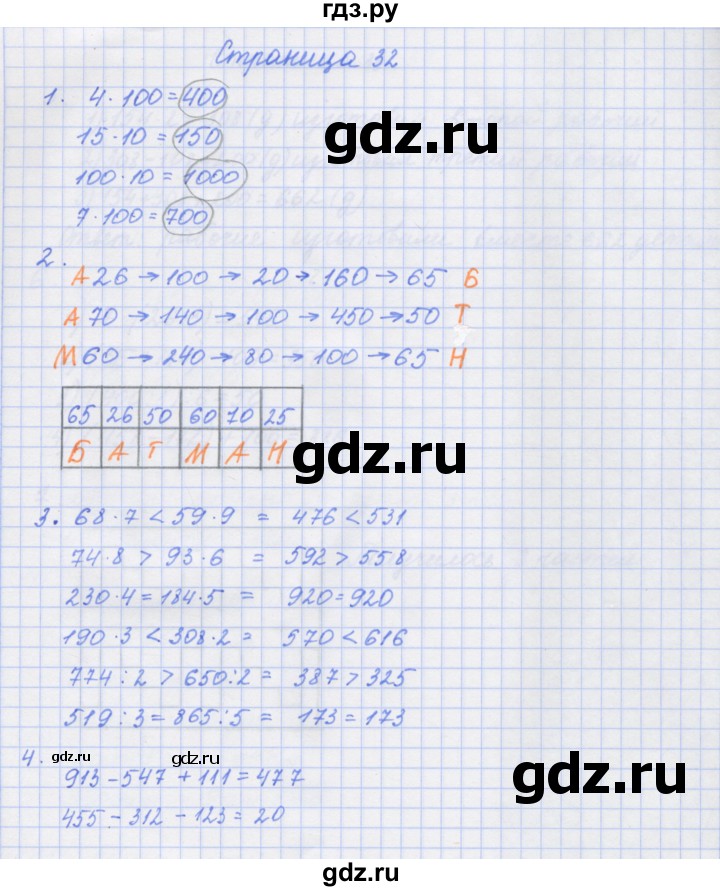 гдз.ру
Страница 32
1. 4 · 100 = 400
15 · 10 = 150
100 · 10 = 1000
7 · 100 = 700
gdz.ru
2.
А 26 → 100 → 20 → 160 → 65 Б
А 70 → 140 → 100 → 450 → 50 Т
М 60 → 240 → 80 → 100 → 65 Н
65 26 50 60 70 25
Б А Т М А Н
3. 68 · 7 < 59 · 9 = 476 < 531
74 · 8 > 93 · 6 = 592 > 558
230 · 4 = 184 · 5 = 920 = 920
gdz.ru
190 · 3 < 308 · 2 = 570 < 616
774 : 2 > 650 : 2 = 387 > 325
519 : 3 = 865 : 5 = 173 = 173
4. gdz.ru gdz.ru
913 - 547 + 111 = 477
gdz.ru
455 - 312 - 123 = 20
gdz.ru